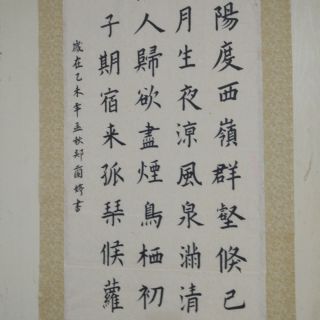 陽度西嶺群壑倏已
月生夜涼風泉滿清
人歸欲盡煙鳥栖初
子期宿来孤琴候蘿
歲在乙未年孟秋書